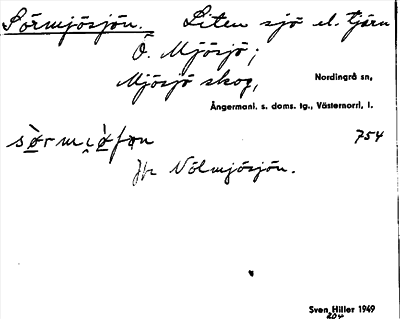 Sörmjösjön. Liten sjö el. tjärn
Ö. Mjösjö;
Mjösjö skog, Nordingrå sn,
Ångermanl. s. doms. tg., Västernorrl, l.
754
Jfr Nölmjösjön.
Sven Hiller 1949
204